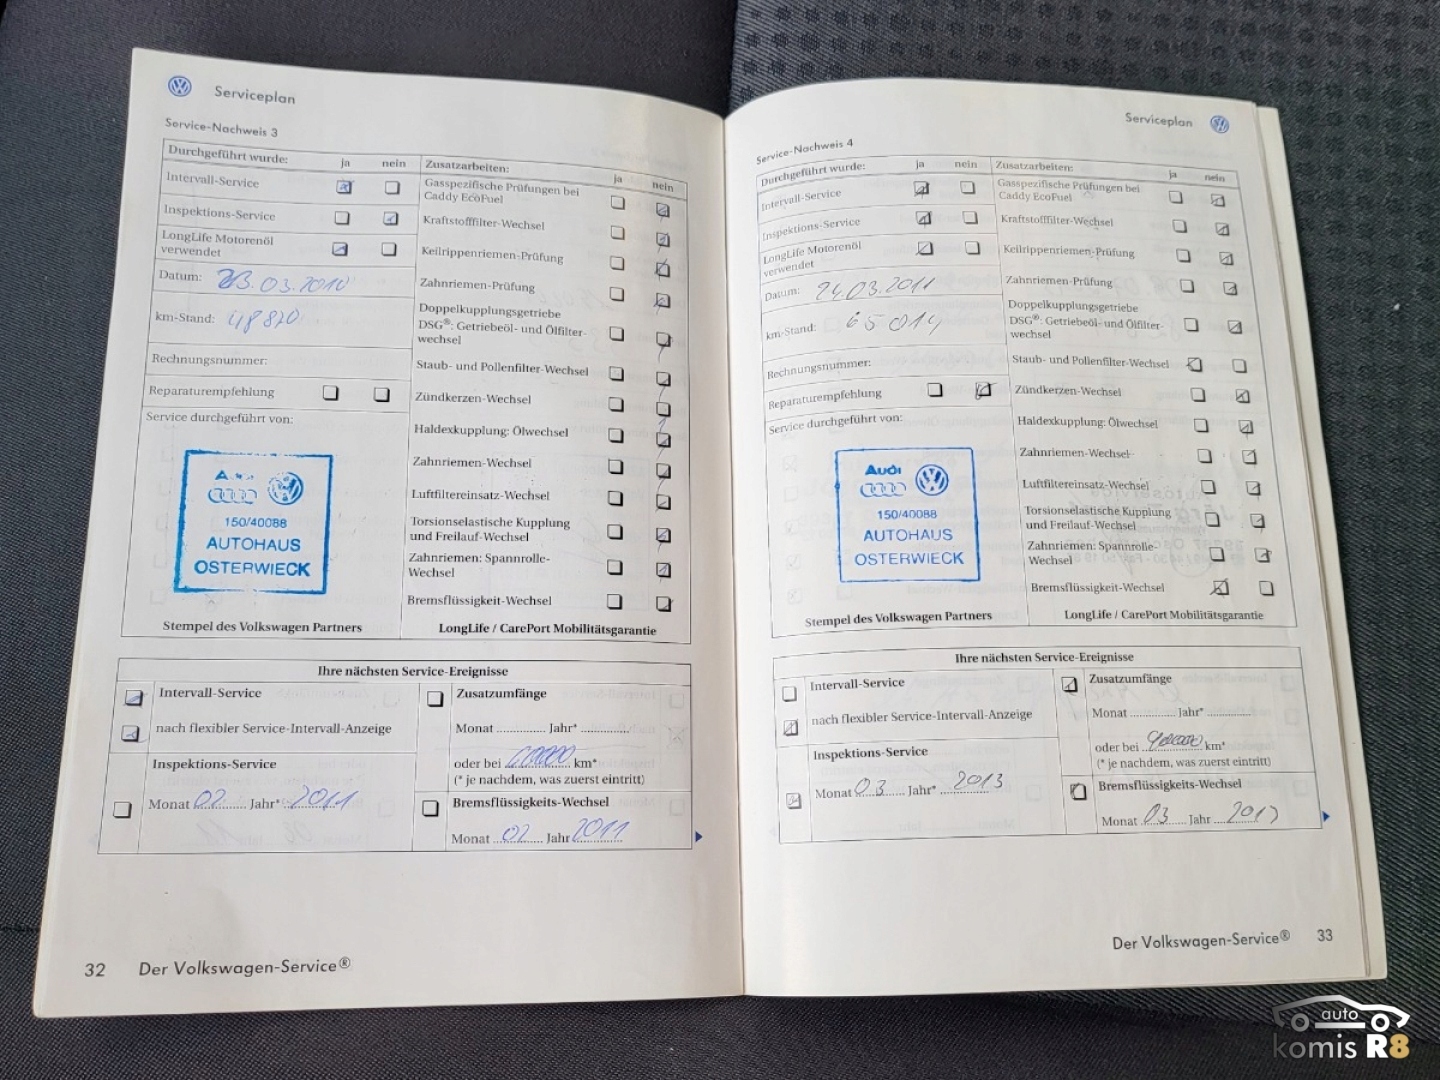 Serviceplan
Service-Nachweis 3
Durchgeführt wurde: ja nein
Intervall-Service
Inspektions-Service
LongLife Motorenöl
verwendet
Datum: 23.03.2010
km-Stand: 48820
Rechnungsnummer:
Reparaturempfehlung
Service durchgeführt von:
150/40088
AUTOHAUS
OSTERWIECK
Stempel des Volkswagen Partners
Zusatzarbeiten: ja nein
Gasspezifische Prüfungen bei
Caddy EcoFuel
Kraftstofffilter-Wechsel
Keilrippenriemen-Prüfung
Zahnriemen-Prüfung
Doppelkupplungsgetriebe
DSG®: Getriebeöl- und Ölfilter-
wechsel
Staub- und Pollenfilter-Wechsel
Zündkerzen-Wechsel
Haldexkupplung: Ölwechsel
Zahnriemen-Wechsel
Luftfiltereinsatz-Wechsel
Torsionselastische Kupplung
und Freilauf-Wechsel
Zahnriemen: Spannrolle-
Wechsel
Bremsflüssigkeit-Wechsel
LongLife / CarePort Mobilitätsgarantie
Ihre nächsten Service-Ereignisse
Intervall-Service
nach flexibler Service-Intervall-Anzeige
Inspektions-Service
Monat 02 Jahr* 2011
Zusatzumfänge
Monat .............. Jahr* ..............
oder bei km*
(* je nachdem, was zuerst eintritt)
Bremsflüssigkeits-Wechsel
Monat 02 Jahr 2011
32 Der Volkswagen-Service®
Serviceplan
Service-Nachweis 4
Durchgeführt wurde: ja nein
Intervall-Service
Inspektions-Service
LongLife Motorenöl
verwendet
Datum: 24.03.2011
km-Stand: 65014
Rechnungsnummer:
Reparaturempfehlung
Service durchgeführt von:
Audi
150/40088
AUTOHAUS
OSTERWIECK
Stempel des Volkswagen Partners
Zusatzarbeiten: ja nein
Gasspezifische Prüfungen bei
Caddy EcoFuel
Kraftstofffilter-Wechsel
Keilrippenriemen-Prüfung
Zahnriemen-Prüfung
Doppelkupplungsgetriebe
DSG®: Getriebeöl- und Ölfilter-
wechsel
Staub- und Pollenfilter-Wechsel
Zündkerzen-Wechsel
Haldexkupplung: Ölwechsel
Zahnriemen-Wechsel
Luftfiltereinsatz-Wechsel
Torsionselastische Kupplung
und Freilauf-Wechsel
Zahnriemen: Spannrolle-
Wechsel
Bremsflüssigkeit-Wechsel
LongLife / CarePort Mobilitätsgarantie
Ihre nächsten Service-Ereignisse
Intervall-Service
nach flexibler Service-Intervall-Anzeige
Inspektions-Service
Monat 03 Jahr* 2013
Zusatzumfänge
Monat .............. Jahr* ..............
oder bei km*
(* je nachdem, was zuerst eintritt)
Bremsflüssigkeits-Wechsel
Monat 03 Jahr 2013
Der Volkswagen-Service® 33
auto
komis R8